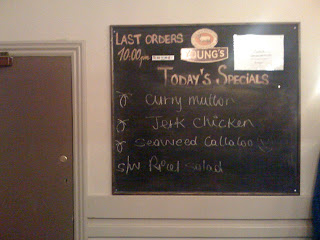 LAST ORDERS
10:00pm YOUNG'S
TODAY'S SPECIALS
Curry mutton
Jerk Chicken
Seaweed Callaloo
S/W Rice salad